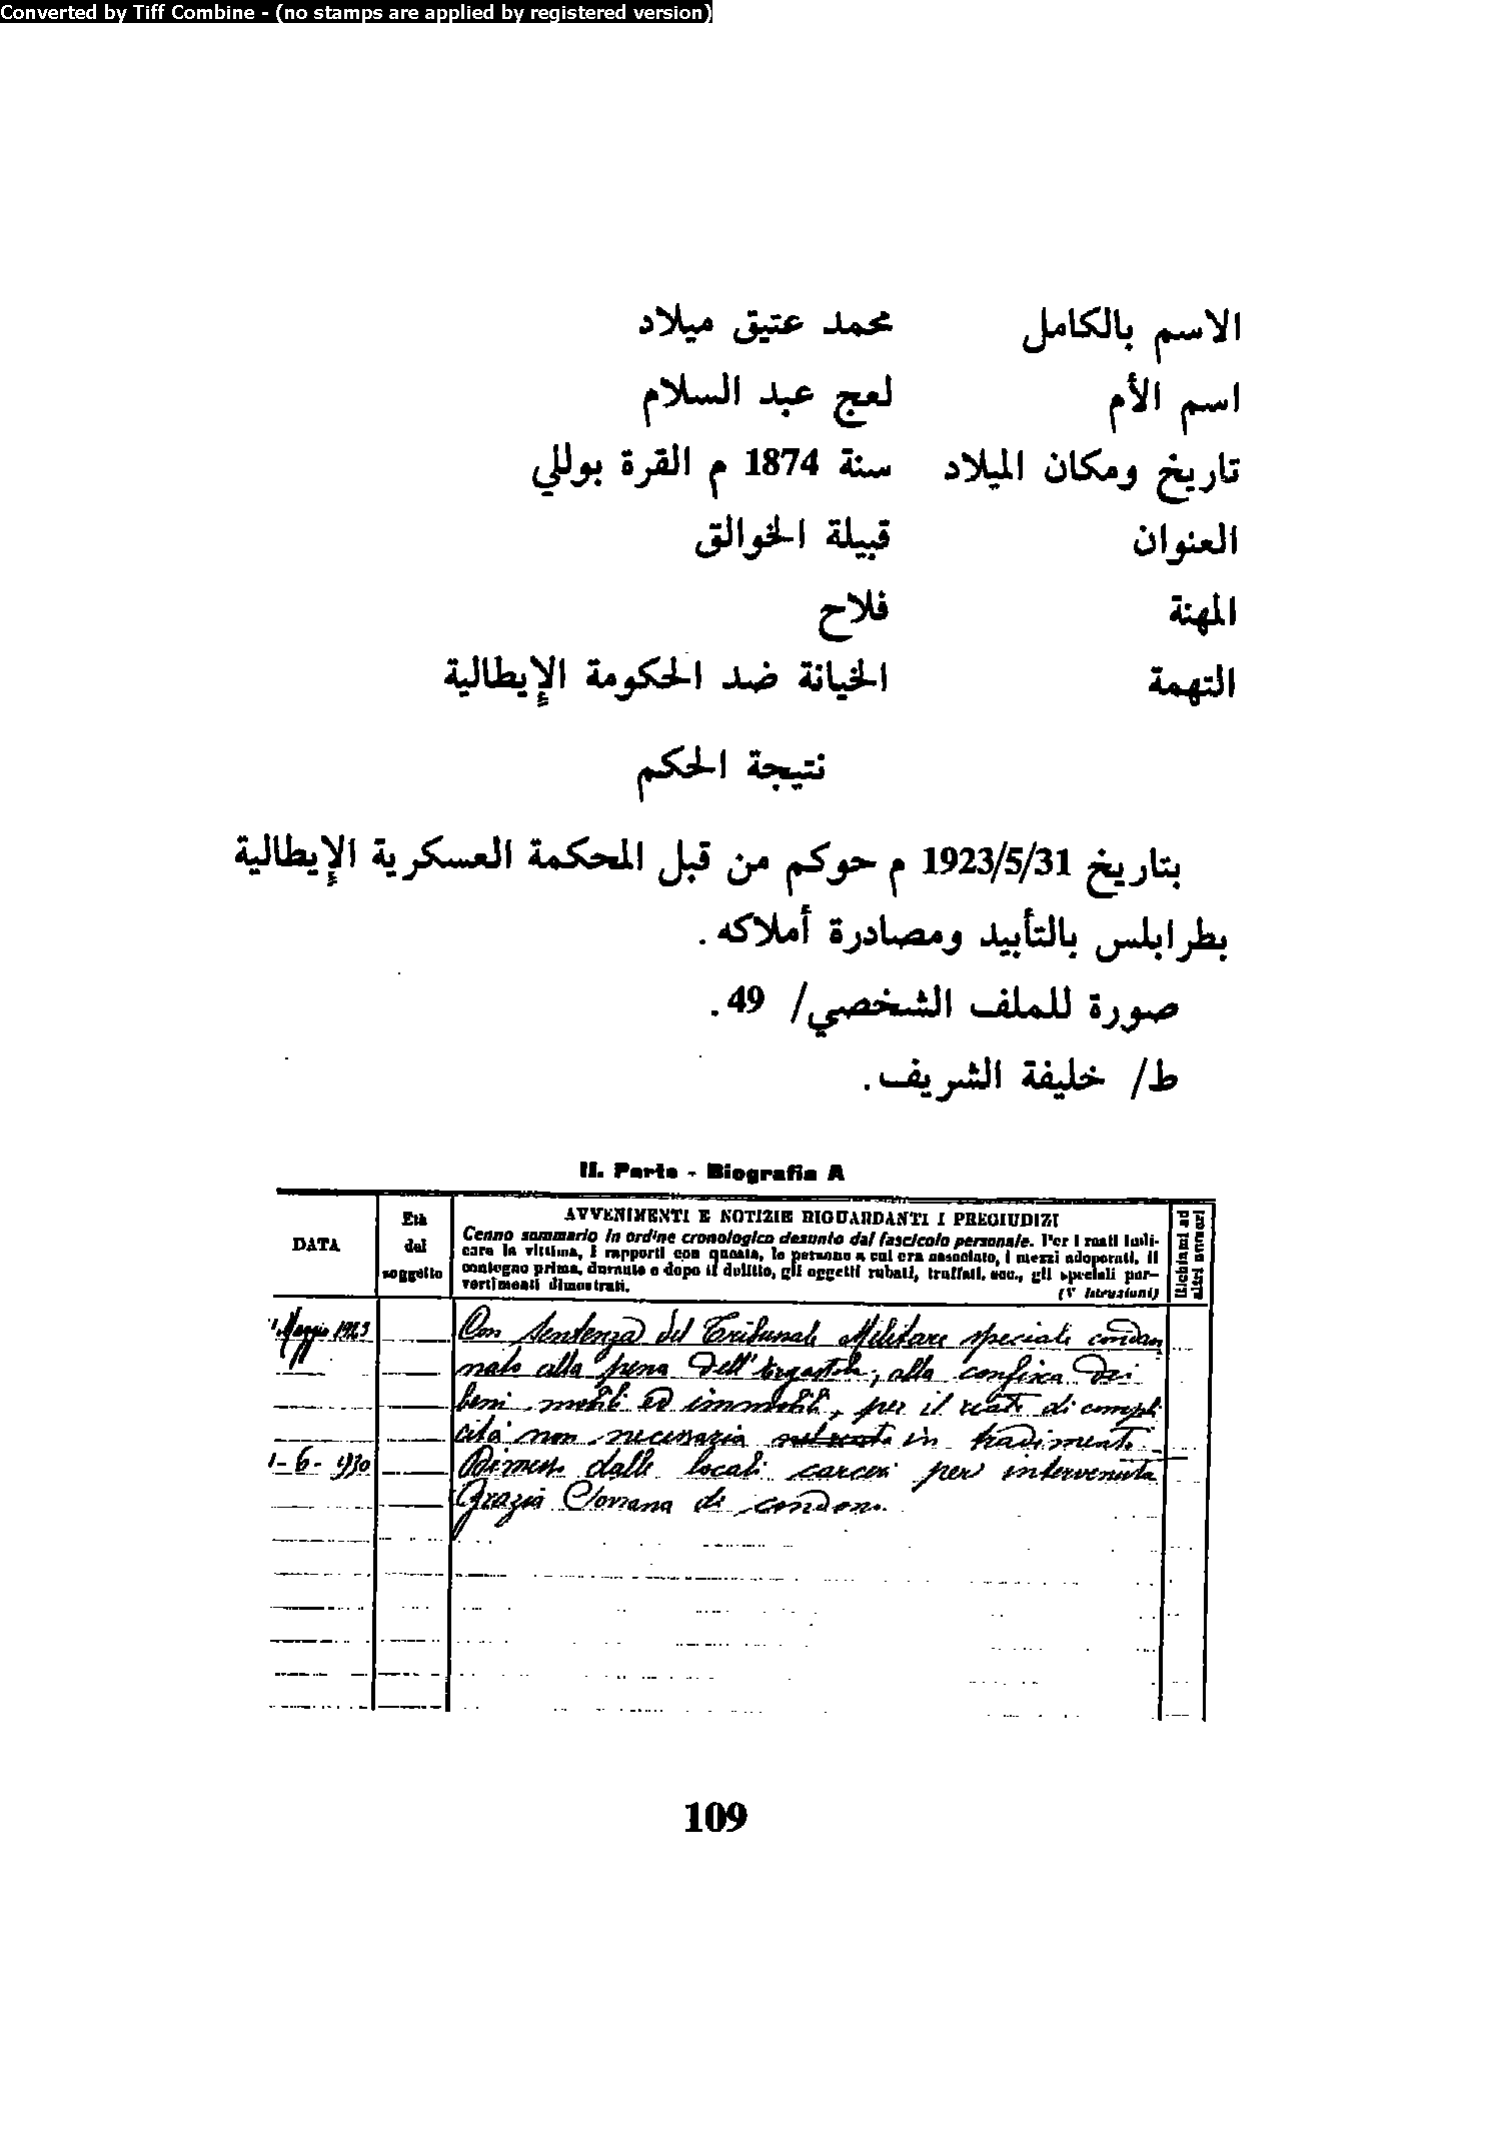 Converted by Tiff Combine - (no stamps are applied by registered version)
الاسم بالكامل محمد عتيق ميلاد
اسم الأم لعج عبد السلام
تاريخ ومكان الميلاد سنة 1874 م القرة بوللي
العنوان قبيلة الخوالق
المهنة فلاح
التهمة الخيانة ضد الحكومة الإيطالية
نتيجة الحكم
بتاريخ 1923/5/31 م حوكم من قبل المحكمة العسكرية الإيطالية
بطرابلس بالتأبيد ومصادرة أملاكه.
صورة للملف الشخصي/ 49.
ط/ خليفة الشريف.
II. Parte - Biografia A
DATA
Età
del
soggetto
AVVENIMENTI E NOTIZIE RIGUARDANTI I PREGIUDIZI
Cenno sommario in ordine cronologico desunto dal fascicolo personale. Per i reati indi-
care la vittima, i rapporti con questa, le persone a cui era associato, i mezzi adoperati, il
contegno prima, durante e dopo il delitto, gli oggetti rubati, truffati, ecc., gli speciali per-
vertimenti dimostrati. (V Istruzioni)
Richiami ad
altri numeri
Maggio 1923 Con sentenza del Tribunale Militare speciale condan
nato alla pena dell'ergastolo, alla confisca dei
beni mobili ed immobili, per il reato di compli
cità non necessaria in tradimento
1-6-1930 Dimesso dalle locali carceri per intervenuta
Grazia Sovrana di condono.
109